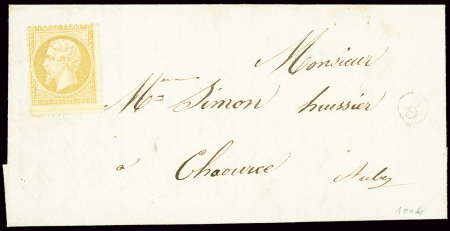 Monsieur
Me Simon huissier
à Chaource Aube